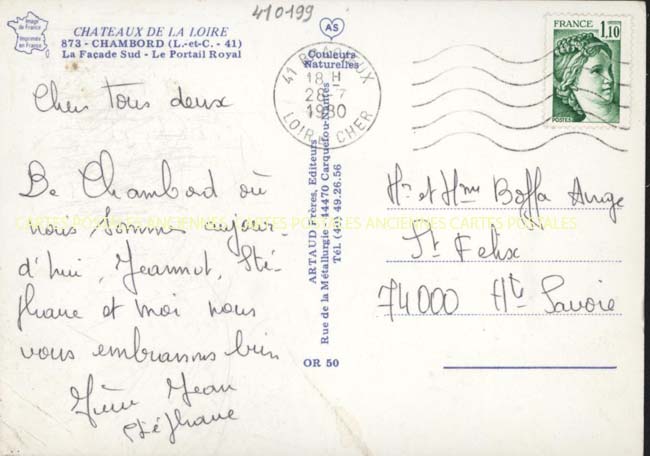 410199
Image de France
Imprimée en France
CHATEAUX DE LA LOIRE
873 - CHAMBORD (L.-et-C. - 41)
La Façade Sud - Le Portail Royal
AS
Couleurs
Naturelles
41 BRACIEUX
18 H
28-7
1980
LOIR ET CHER
FRANCE
1,10
POSTES
Chers tous deux
De Chambord où
nous sommes aujour-
d'hui, Jeannot, Sté-
phane et moi nous
vous embrassons bien
Jean
Stéphane
ARTAUD Frères, Editeurs
Rue de la Métallurgie - 44470 Carquefou-Nantes
Tél. (40) 49.26.56
OR 50
Mr et Mme Boffa Ange
St Felix
74000 Hte Savoie
CARTES POSTALES ANCIENNES CARTES POSTALES ANCIENNES CARTES POSTALES